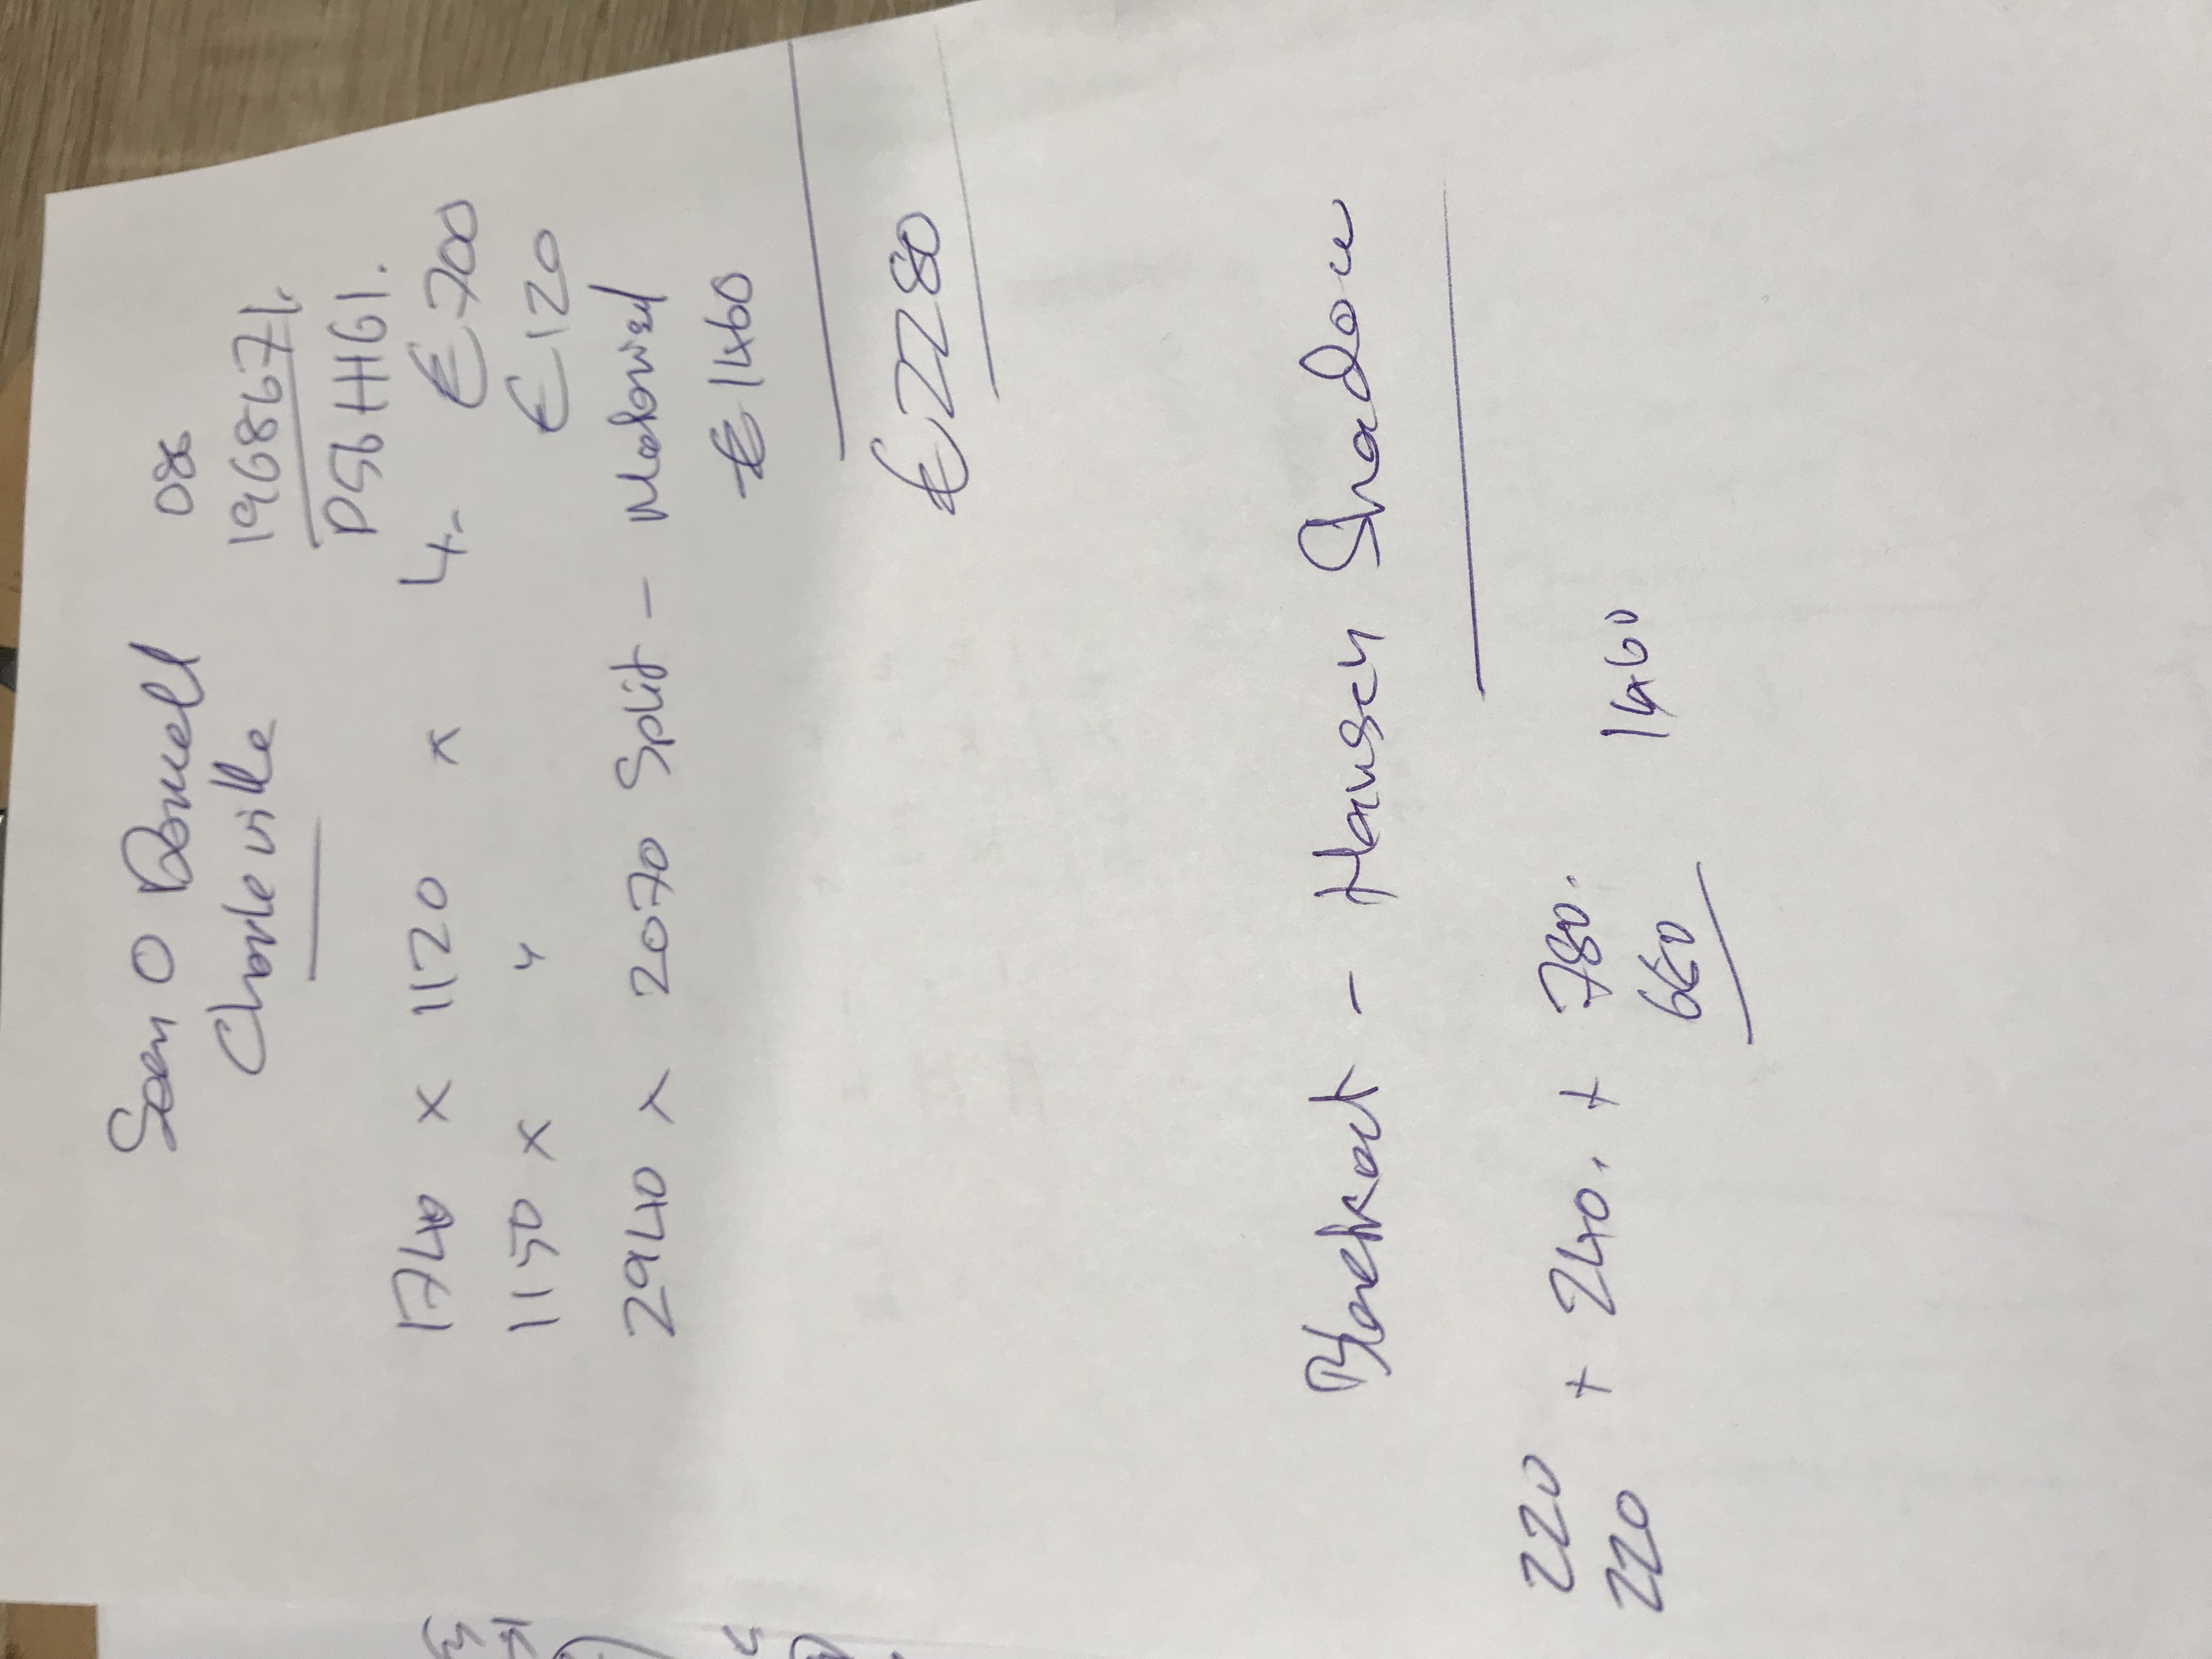 Sean O Donnell 086
Charleville 1968671.
P56 HH61.
1740 x 1120 x 4. - € 700
1150 x " € 120
2940 x 2070 Split - Motorised
€ 1460
€ 2280
Blackout - Hansen Shadow
220 + 240. + 780.
220 660 1460